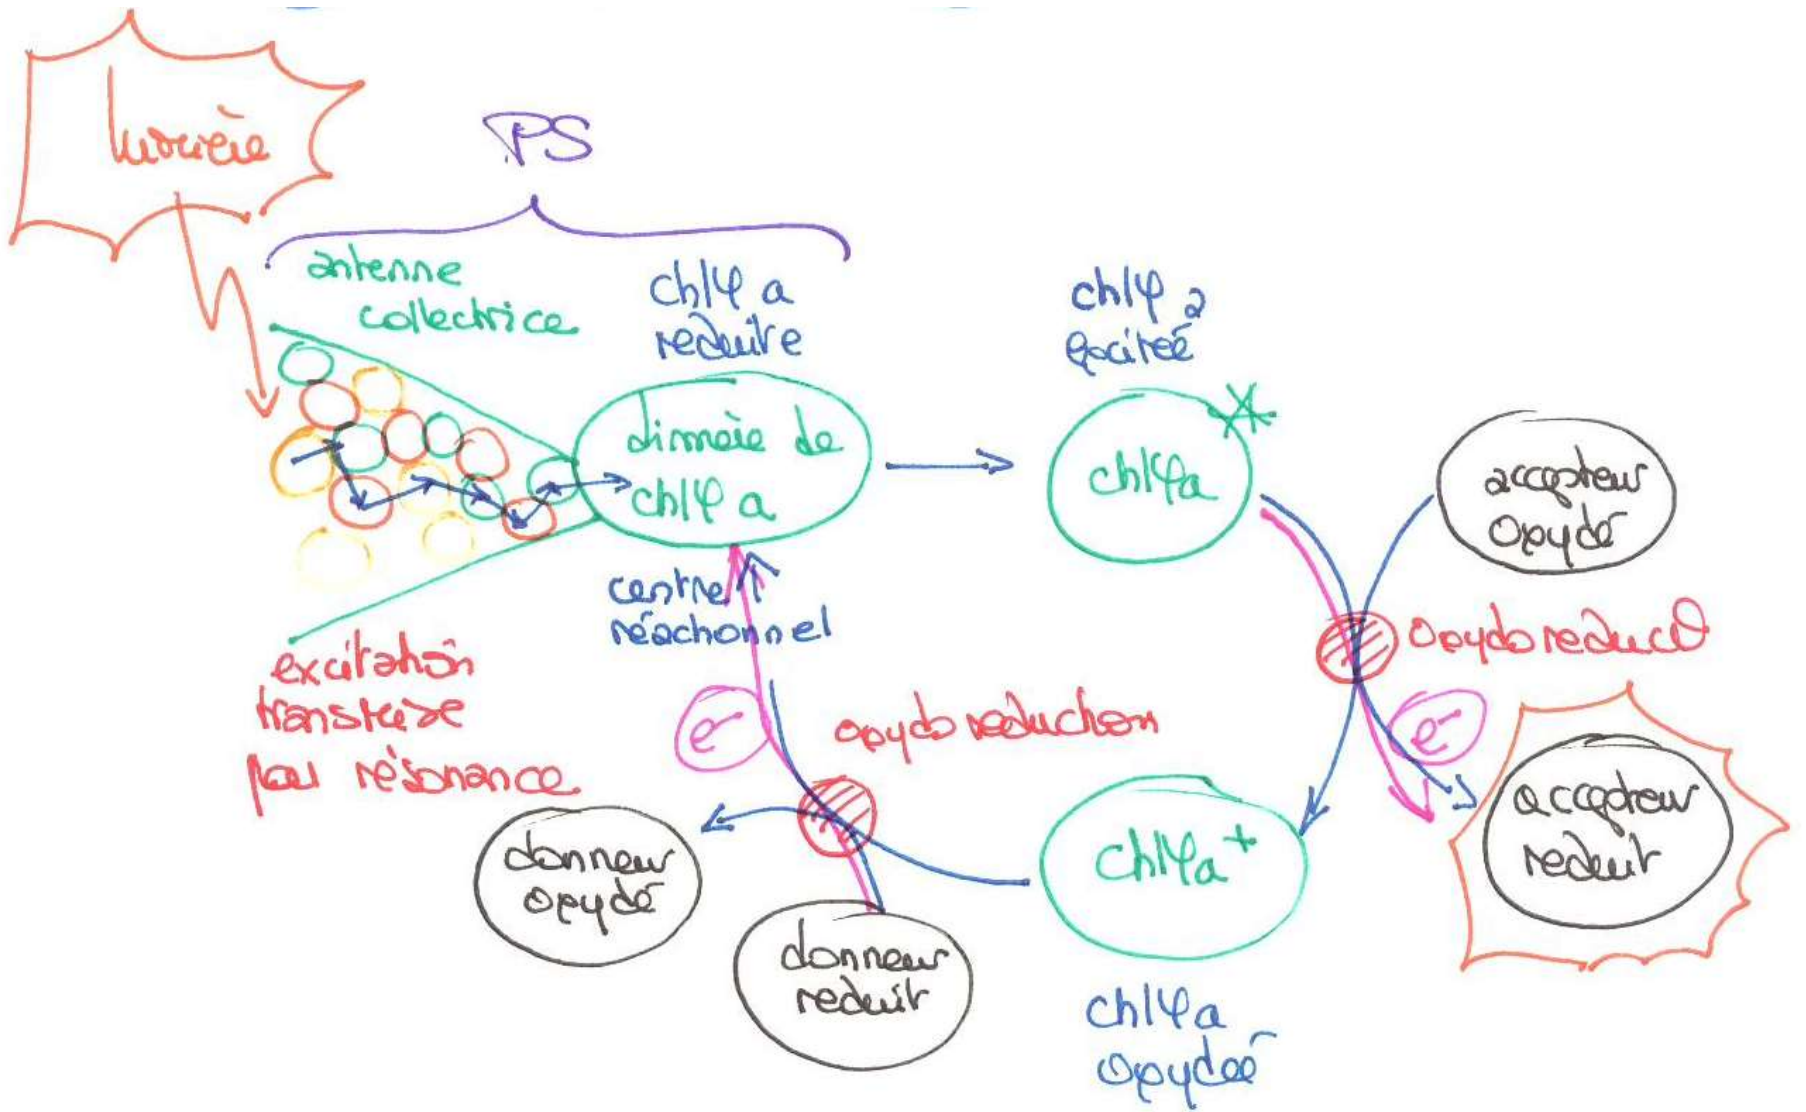 lumière
PS
antenne
collectrice
chlφ a
réduite
chlφ a
excitée
dimère de
chlφ a
chlφa
accepteur
oxydé
centre
réactionnel
oxydoreduct°
excitation
transférée
par résonance
e-
oxydoreduction
e-
accepteur
reduit
donneur
oxydé
chlφa+
donneur
reduit
chlφa
oxydée